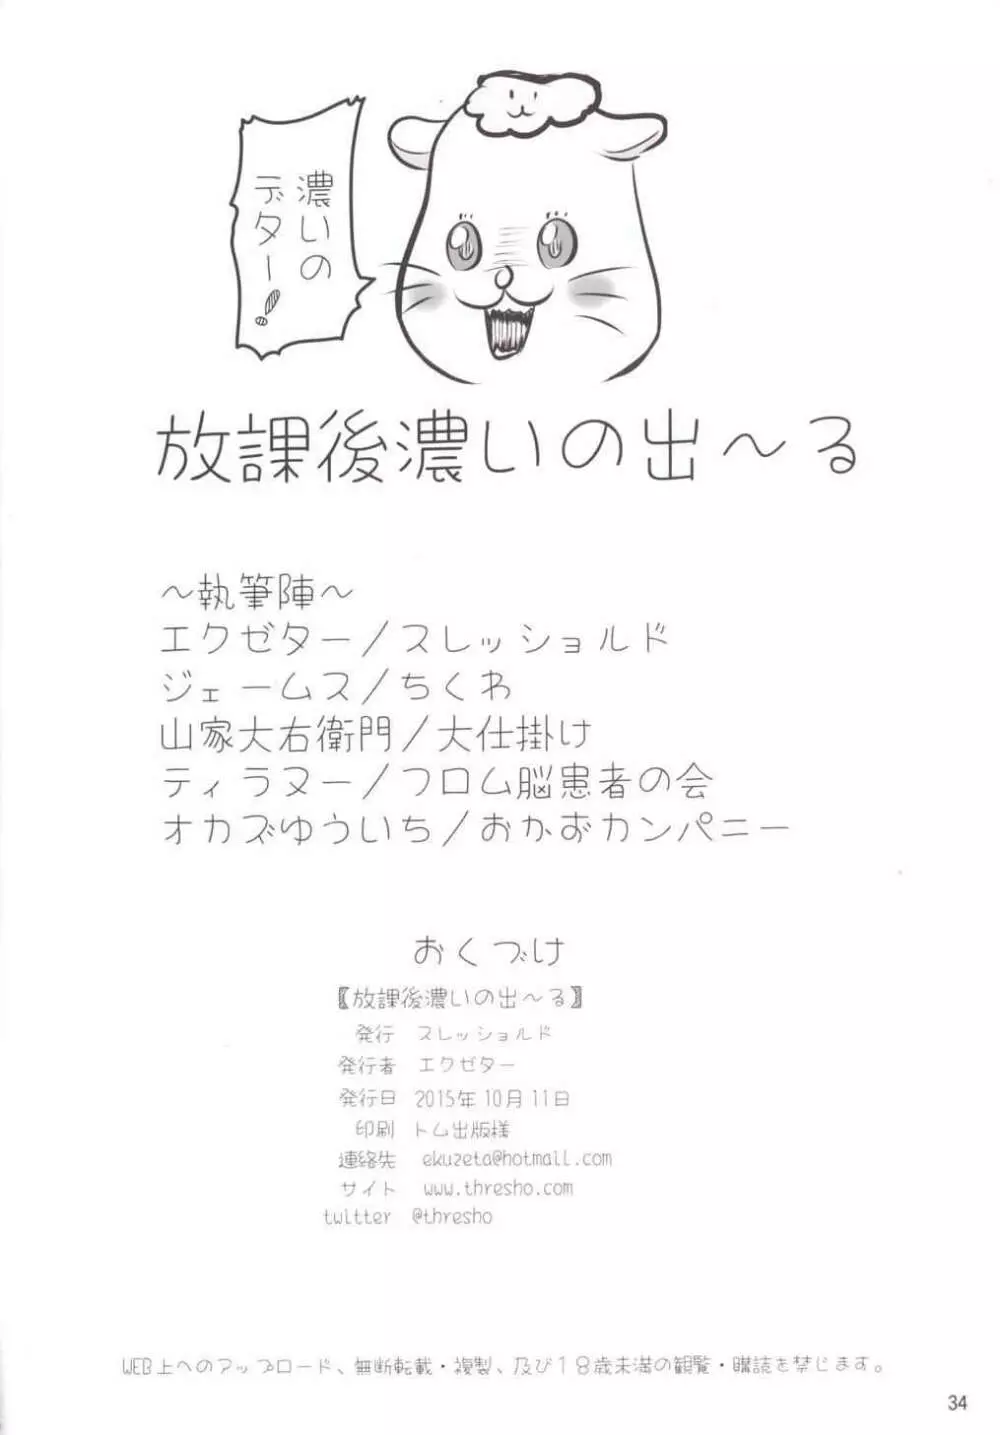 濃いの
デター!
放課後濃いの出～る
～執筆陣～
エクゼター/スレッショルド
ジェームス/ちくわ
山家大右衛門/大仕掛け
ティラヌー/フロム脳患者の会
オカズゆういち/おかおカンパニー
おくづけ
〖放課後濃いの出～る〗
発行 スレッショルド
発行者 エクゼター
発行日 2015年10月11日
印刷 トム出版様
連絡先 ekuzeta@hotmail.com
サイト www.thresho.com
twitter @thresho
WEB上へのアップロード、無断転載・複製、及び18歳未満の観覧・購誌を禁じます。
34